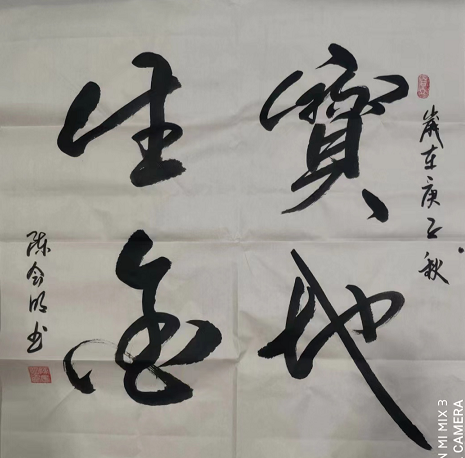 歲在庚子秋
寶地
生金
陈会明书
MI MIX 3
CAMERA